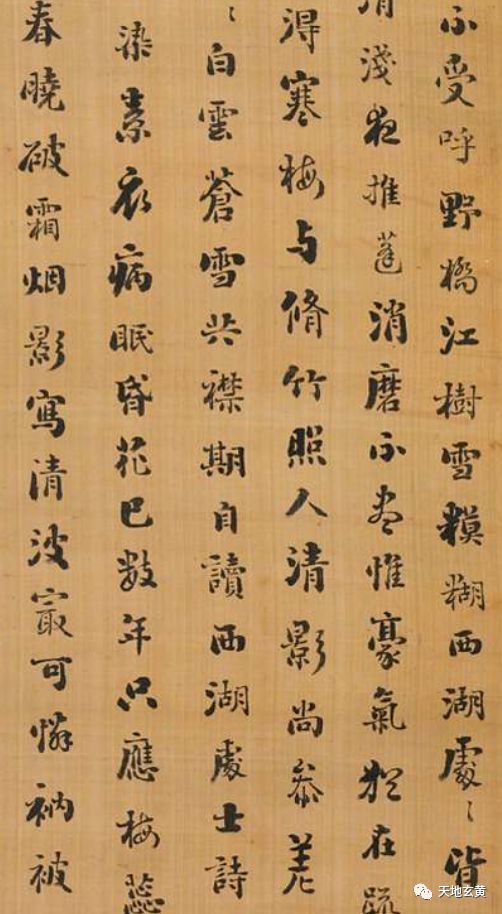 不受呼野橋江樹雪糢糊西湖處〻皆
清淺夜推蓬消磨不盡惟豪氣猶在疏
得寒梅与脩竹照人清影尚參差
〻白雲蒼雪共襟期自讀西湖處士詩
染素衣病眼昏花已數年只應梅蕊
春曉破霜烟影寫清波寂可憐衲被
天地玄黄